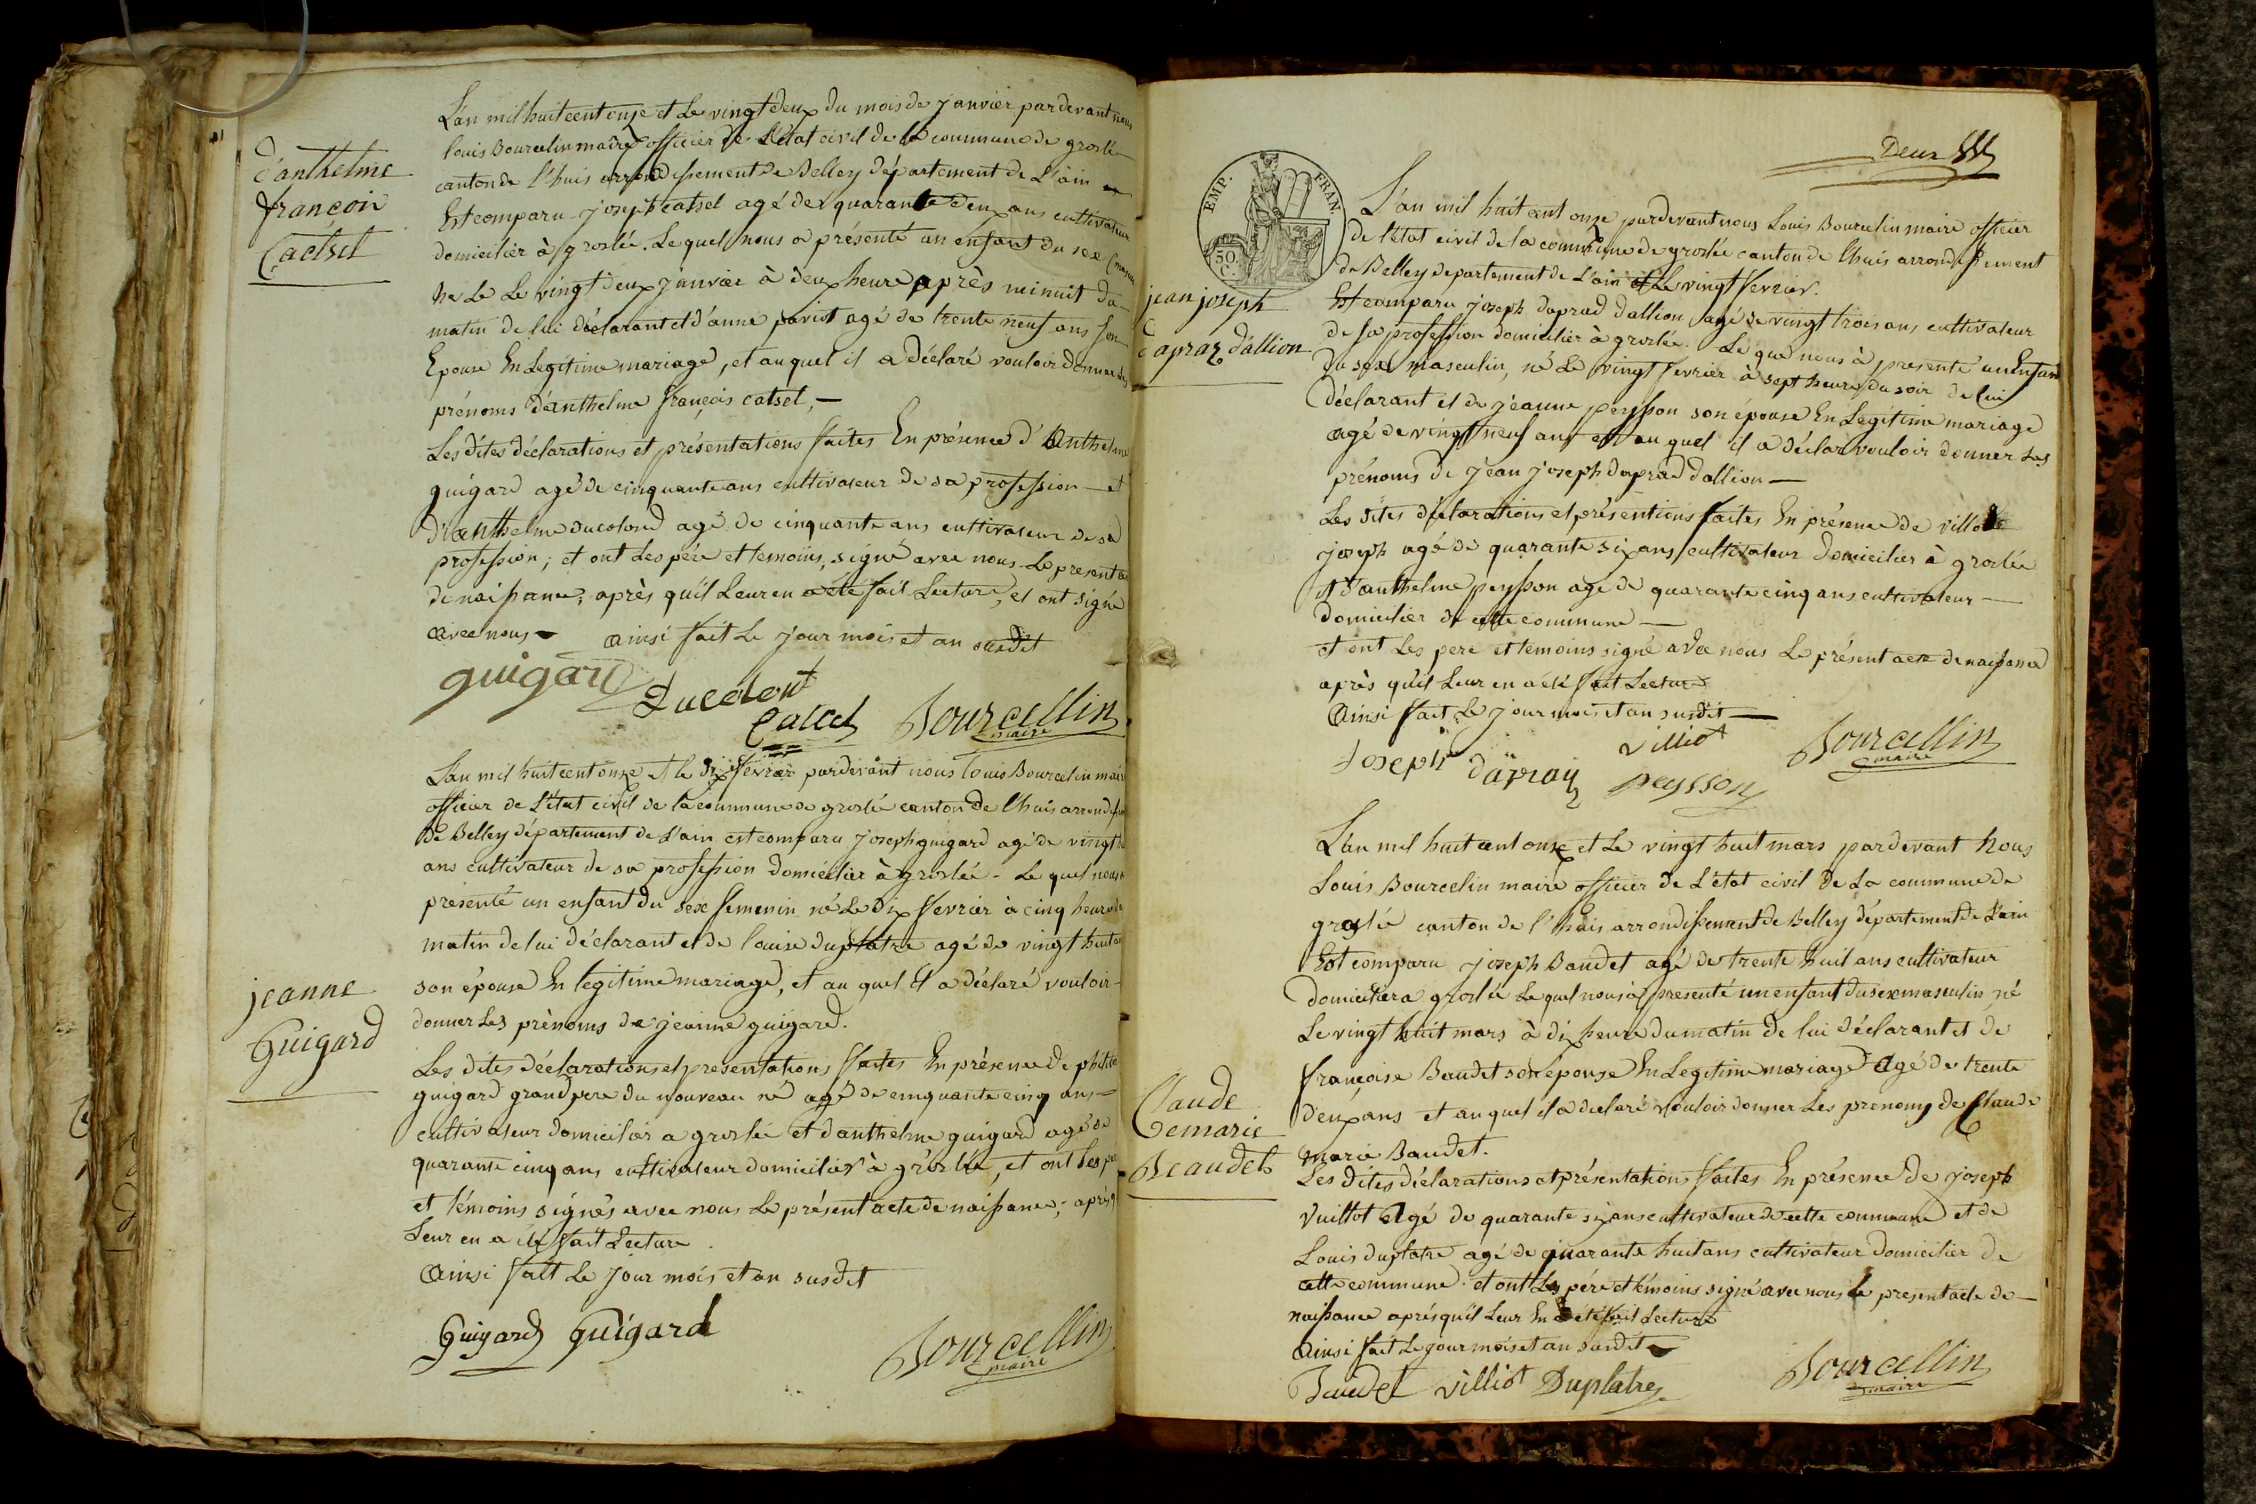 d'anthelme
françois
Catsel
L'an mil huit cent onze et le vingt deux du mois de janvier pardevant nous
louis Bourcelin maire officier de l'état civil de la commune de groslée
canton de l'huis arrondissement de Belley département de L'ain
Est comparu joseph catsel agé de quarante deux ans cultivateur
domicilier à groslée. Le quel nous a présenté un enfant du sexe
né Le Le vingt deux janvier à deux heure après minuit du
matin de lui déclarant et d'anne parist agé de trente neuf ans son
Epouse En Legitime mariage, et au quel il a déclaré vouloir donner les
prénoms d'anthelme françois catsel, —
Les dites déclarations et présentations faites En présence d'Anthelme
guigard agé de cinquante ans cultivateur de sa profession — et
d'anthelme ducolond agé de cinquante ans cultivateur de sa
profession; et ont Les pére et temoins, signé avec nous Le present
de naissance, après qu'il Leur en a été fait Lecture, et ont signé
avec nous — ainsi fait Le jour mois et an susdit
guigard
Ducolont
Catsel Bourcellin
maire
jeanne
Guigard
L'an mil huit cent onze et le dix fevrier pardevant nous louis Bourcelin maire
officier de L'état civil de la commune de groslé canton de l'huis
de Belley département de L'ain est comparu joseph guigard agé de vingt
ans cultivateur de sa profession domicilier à groslée - Le quel nous
présenté un enfant du sexe femenin né Le dix fevrier à cinq heure du
matin de lui déclarant et de louise duplatre agé de vingt huit ans
son épouse En legitime mariage, et au quel il a déclaré vouloir-
donner Les prènoms de jeanne guigard.
Les dites déclarations et presentations faites En présence de
guigard grand pere du nouveau né agé de cinquante cinq ans —
cultivateur domicilier a groslée et d'anthelme guigard agé de
quarante cinq ans cultivateur domicilier à groslée, et ont Les
et témoins signés avec nous Le présent acte de naissance; après
Leur en a été fait Lecture
Ainsi fait Le jour mois et an susdit
Guigard Guigard
Bourcellin
maire
Deux
EMP. FRAN.
50 C.
jean joseph
dapraz d'allion
L'an mil huit cent onze pardevant nous Louis Bourcelin maire officier
de l'état civil de la commune de groslée canton de l'huis arrondissement
de Belley departement de L'ain et Le vingt fevrier.
Est comparu joseph daprad dallion agé de vingt trois ans cultivateur
de sa profession domicilier à groslée. Le quel nous à presenté un Enfant
du sexe masculin, né Le vingt fevrier à sept heure du soir de lui
déclarant et de jeanne peysson son épouse En Legitime mariage
agé de vingt neuf ans et au quel il a déclaré vouloir donner Les
prénoms de jean joseph daprad dallion —
Les dites déclarations et présentions faites En présence de villiot
joseph agé de quarante six ans cultivateur domicilier à groslée
et d'anthelme peysson agé de quarante cinq ans cultivateur —
domicilier de cette commune —
et ont Les pere et temoins signé avec nous Le présent acte de naissance
après qu'il Leur en a été fait Lecture
Ainsi fait Le jour mois et an susdit —
villiot
Joseph dapraz peysson Bourcellin
maire
Claude
marie
Beaudet
L'an mil huit cent onze et Le vingt huit mars pardevant Nous
Louis Bourcelin maire officier de L'état civil de La commune de
groslé canton de l'huis arrondissement de Belley département de L'ain
Est comparu joseph Baudet agé de trente huit ans cultivateur
domicilier a groslée Le quel nous à presenté un enfant du sexe masculin né
Le vingt huit mars à dix heure du matin de lui déclarant et de
françoise Baudet son épouse En Legitime mariage agé de trente
deux ans et au quel il a declaré vouloir donner Les prenoms de Claude
marie Baudet.
Les dites déclarations et présentations faites En présence de joseph
Vuillot agé de quarante six ans cultivateur de cette commune et de
Louis duplatre agé de quarante huit ans cultivateur domicilier de
cette commune et ont Les pére et témoins signé avec nous le present acte de —
naissance après qu'il Leur En a été fait Lecture
Ainsi fait Le jour mois et an susdit
Baudet villiot Duplatre Bourcellin
maire